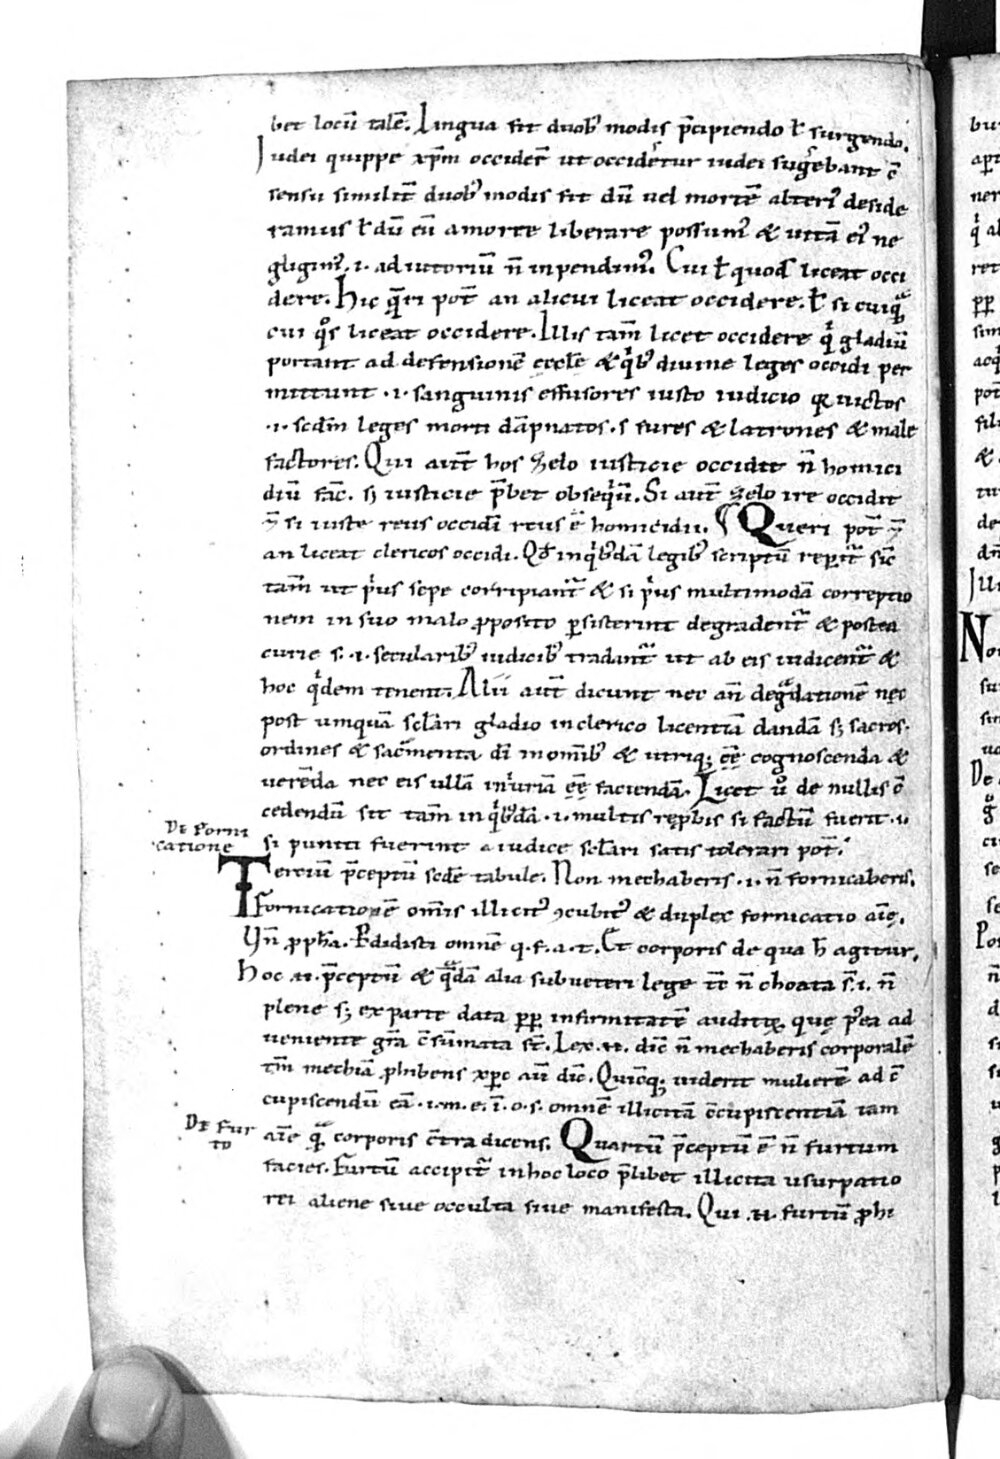 bet locū talē. Lingua fit duob' modis p̄cipiendo ł surgendo.
Iudei quippe xp̄m occider̄ ut occideretur iudei sugerebant c̄
sensu similit̄ duob' modis fit dū vel mortē alteri' deside
ramus ł dū eū a morte liberare possum' & uitā ei' ne
gligim' .i. adiutoriū n̄ inpendim'. Cui ł quod liceat occi
dere. Hic q̄ri pot̄ an alicui liceat occidere. ł si cuiq̄
cui q̊s liceat occidere. Illis tam̄ licet occidere qⁱ gladiū
portant ad defensionē eccłe & qⁱb' divine leges occidi per
mittunt .i. sanguinis effusores iusto iudicio
.i. scdm̄ leges morti dāpnatos .s. fures & latrones & male
factores. Qui aut̄ hos zelo iusticie occidit n̄ homici
diū fac̄. sꝫ iusticie p̄bet obseqⁱū. Si aut̄ zelo ire occidit
si iuste reus occidi reus ē homicidii. ¶ Queri pot̄
an liceat clericos occidi. Qd̄ in qⁱb'dā legib' scriptū reperit̄ sic̄
tam̄ ut pⁱus sepe corripiant̄ & si pⁱus multimodā correptio
nem in suo malo ꝓposito ꝑsisterint degradent̄ & postea
curie .s. .i. secularib' iudicib' tradant̄ ut ab eis iudicent̄ &
hoc qⁱdem tenent. Alii aut̄ dicunt nec an̄ degᵃdationē nec
post umquā sclari gladio in clerico licentiā dandā sꝫ sacros
ordines & sac̄menta dī in om̄ib' & utriq; eē̄ cognoscenda &
uerēda nec eis ullā iniⁱuriā eē̄ faciendā. Licet ů de nullis c̄
cedendū sit tam̄ in qⁱb'dā .i. multis rep̄bis si factū fuerit .i.
si puniti fuerint a iudice sclari satis tolerari pot̄.
De forni
catione
Terciū p̄ceptū scd̄e tabule. Non mechaberis .i. n̄ fornicaberis.
Fornicationē om̄is illicit' ꝯcubit' & duplex fornicatio aīe.
Un̄ ꝓph̄a. Pdidisti omnē q. f. a. t. Et corporis de qua h̄ agitur.
Hoc .n. p̄ceptū & q̄dā alia sub ueteri lege n̄ choata s̄ .i. n̄
plene sꝫ ex parte data ꝓp̄ infirmitatē que p̄ea ad
ueniente gr̄a c̄sūmata st̄. Lex .n. dic̄ n̄ mechaberis corporalē
tm̄ mechiā ꝓhibens xp̄c aū dic̄. Quicq; uiderit mulierē ad c̄
cupiscendū eā .i. m. e. ī. o. s. omnē illicitā c̄cupiscentiā tam
De fur
to
aīe q̄ corporis c̄tradicens. Quartū p̄ceptū ē n̄ furtum
facies. Furtū accipit̄ in hoc loco p̄ libet illicita usurpatio
rei aliene siue occulta siue manifesta. Qui .n. furtū ꝓhi